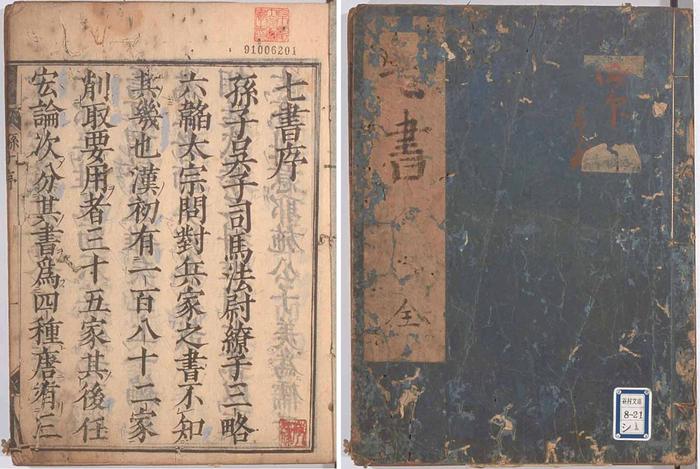 91006201
七書序
孫子吳子司馬法尉繚子三略
六韜太宗問對兵家之書不知
其幾也漢初有一百八十二家
削取要用者三十五家其後任
宏論次分其書爲四種唐有三
七書
全
谷村文庫
8-21
シ1